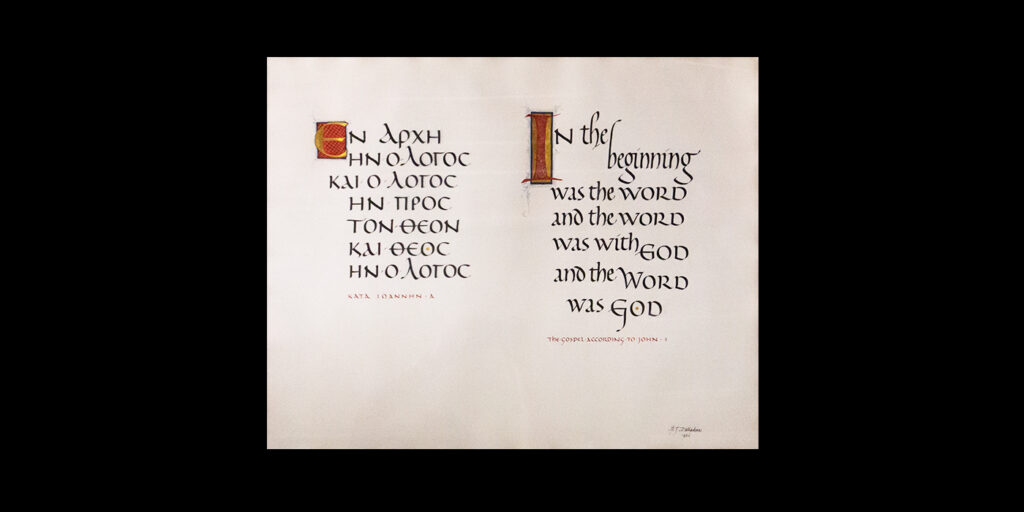 ΕΝ ΑΡΧΗ
ΗΝ Ο ΛΟΓΟΣ
ΚΑΙ Ο ΛΟΓΟΣ
ΗΝ ΠΡΟΣ
ΤΟΝ ΘΕΟΝ
ΚΑΙ ΘΕΟΣ
ΗΝ Ο ΛΟΓΟΣ
ΚΑΤΑ ΙΩΑΝΝΗΝ · Α
In the
beginning
was the WORD
and the WORD
was with GOD
and the WORD
was GOD
The GOSPEL ACCORDING TO JOHN · I